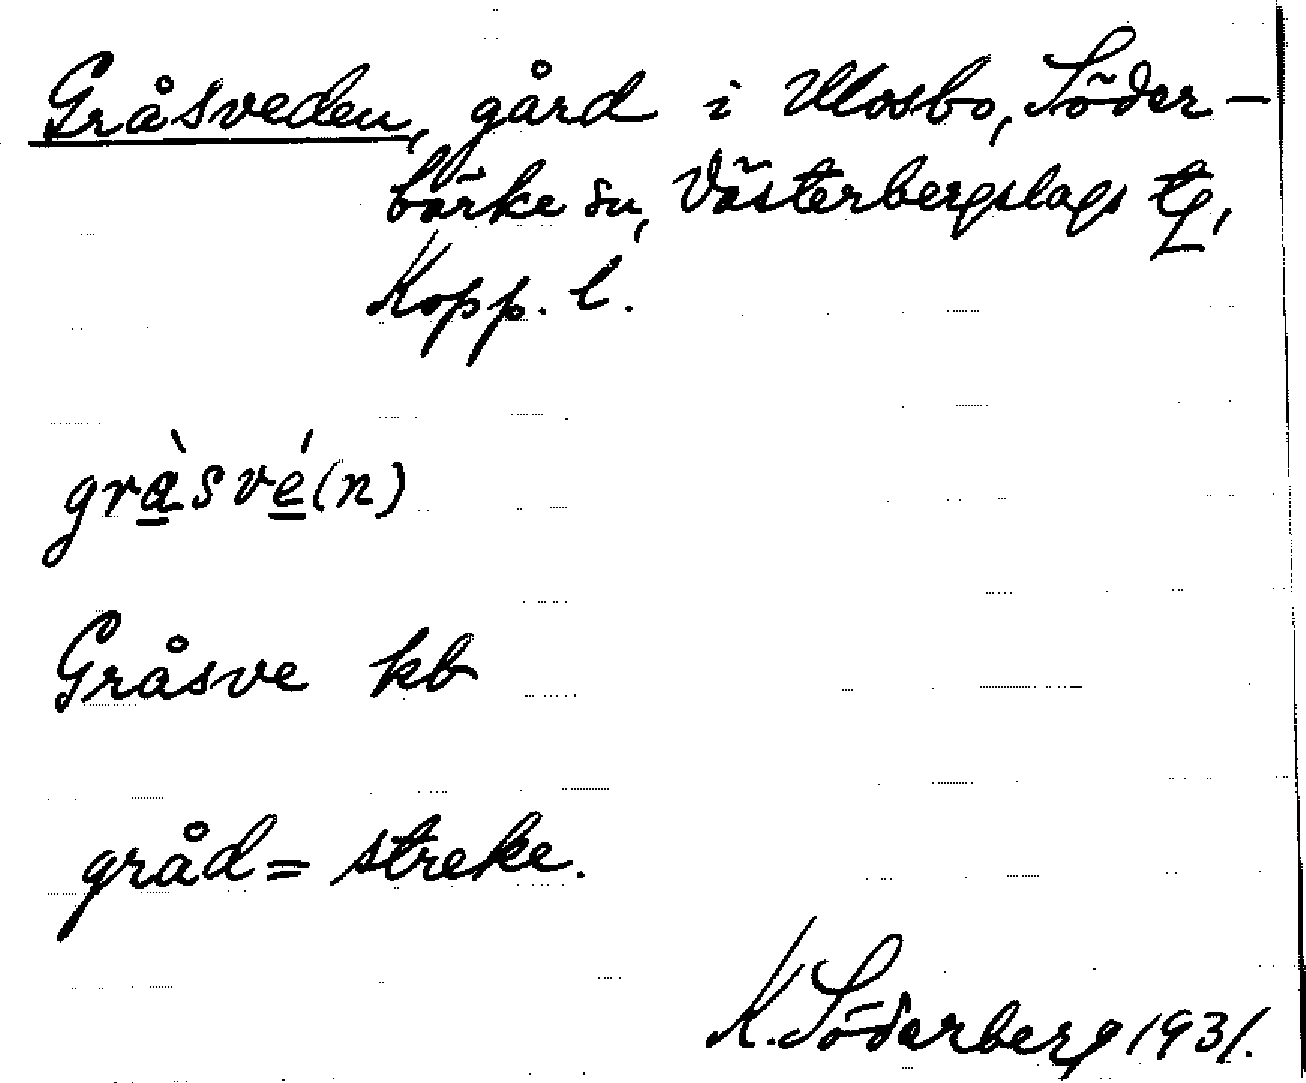 Gråsveden, gård i Mosbo, Söder-
bärke sn, Västerbergslags tg,
Kopp. l.
gràsvé(n)
Gråsve kb
gråd = streke.
K. Söderberg 1931.